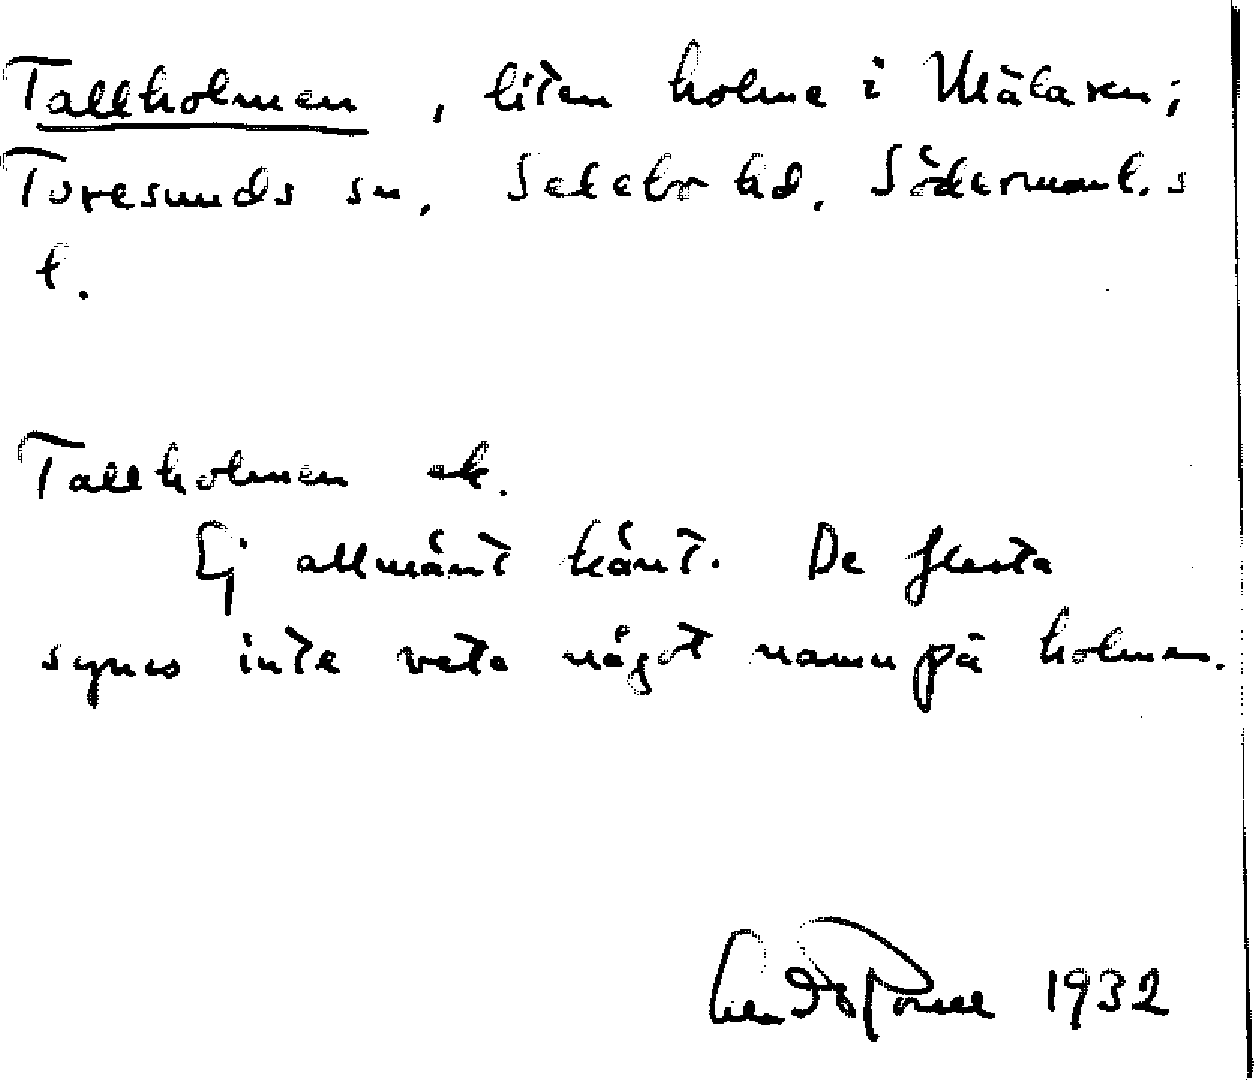 Tallholmen, liten holme i Mälaren;
Toresunds sn, Selebo hd, Södermanl.s
l.
Tallholmen ek.
Ej allmänt känt. De flesta
synes inte veta något namn på holmen.
1932